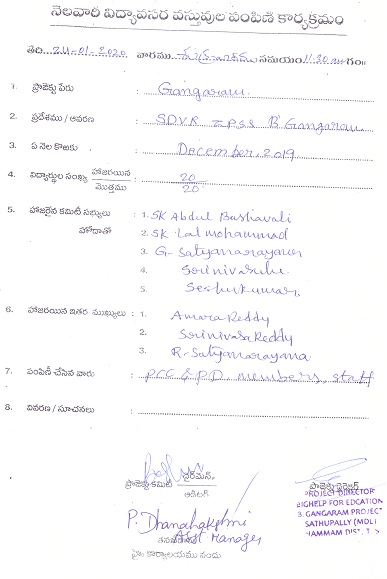 నెలవారి విద్యావసర వస్తువుల పంపిణి కార్యక్రమం
తేది: 24-01-2020 వారము శుక్రవారము సమయం 11.30 గం॥
1. ప్రాజెక్టు పేరు : Gangaram
2. ప్రదేశము / ఆవరణ : SDVR ZPSS B Gangaram
3. ఏ నెల కొఱకు : December, 2019
4. విద్యార్థుల సంఖ్య హాజరయిన / మొత్తము : 20/20
5. హాజరైన కమిటీ సభ్యులు : 1. SK Abdul Bashavali
హోదాతో 2. SK. Lal mohammad
3. G. Satyanarayana
4. Srinivasulu
5. Seshukumar
6. హాజరయిన ఇతర ముఖ్యులు : 1. Amara Reddy
2. Srinivasa Reddy
3. R. Satyanarayana
7. పంపిణీ చేసిన వారు : PCC & P.D. members, staff
8. వివరణ / సూచనలు :
ప్రాజెక్టు కమిటీ చైర్మన్ ప్రాజెక్టు డైరెక్టర్
ఆడిటర్
PROJECT DIRECTOR
BIGHELP FOR EDCATION
B. GANGARAM PROJECT
SATHUPALLY (MDL)
KHAMMAM DIST. T.S
P. Dhanalakshmi
Asst Manager
హై॥ కార్యాలయము నందు